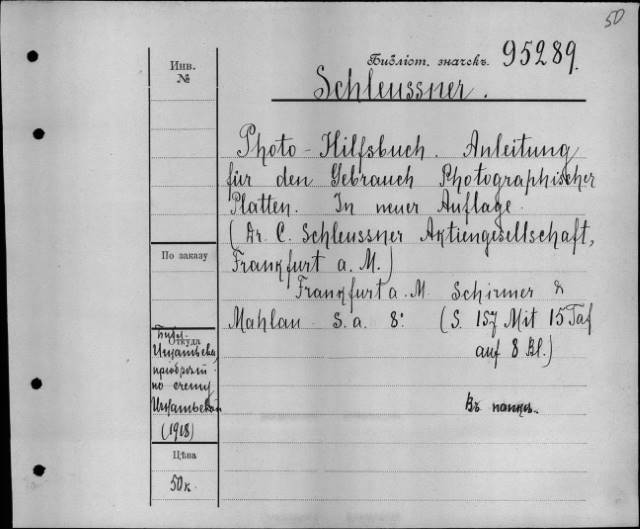 50
Библіот. значекъ 95289.
Schleussner.
Инв.
№
Photo-Hilfsbuch. Anleitung
für den Gebrauch Photographischer
Platten. In neuer Auflage.
(Dr. C. Schleussner Aktiengesellschaft,
Frankfurt a. M.)
Frankfurt a. M. Schirmer &
Mahlau S. a. 8:
(S. 157 Mit 15 Taf
auf 8 Bl.)
Въ папкѣ.
По заказу
Откуда
Библ.
Игнатьева,
по счету
(1918)
Цѣна
50 к